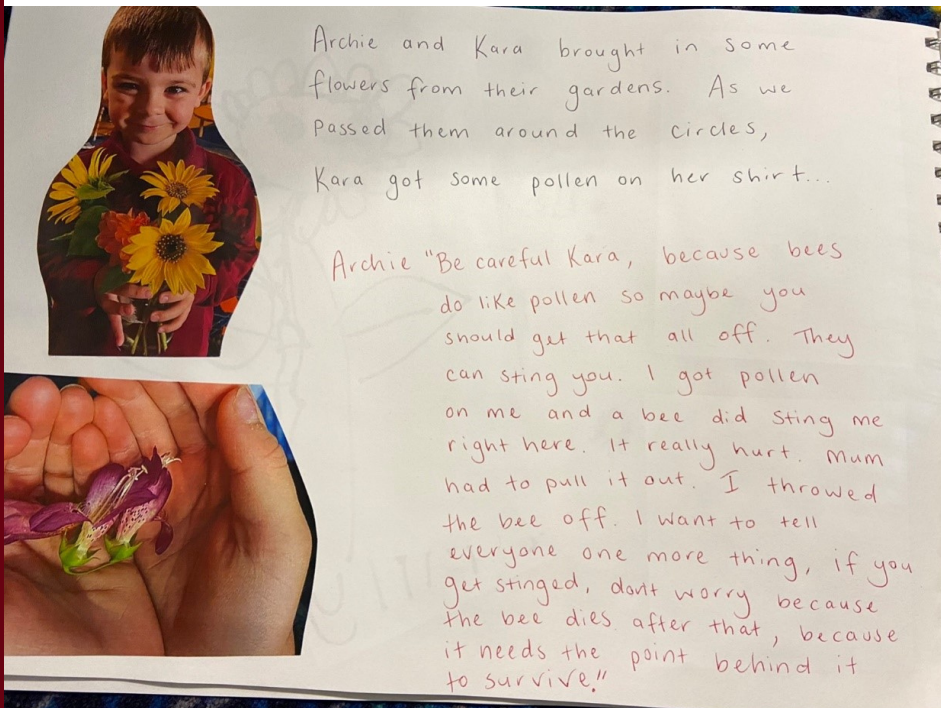 Archie and Kara brought in some
flowers from their gardens. As we
passed them around the circles,
Kara got some pollen on her shirt...
Archie "Be careful Kara, because bees
do like pollen so maybe you
should get that all off. They
can sting you. I got pollen
on me and a bee did sting me
right here. It really hurt. Mum
had to pull it out. I throwed
the bee off. I want to tell
everyone one more thing, if you
get stinged, don't worry because
the bee dies after that, because
it needs the point behind it
to survive."